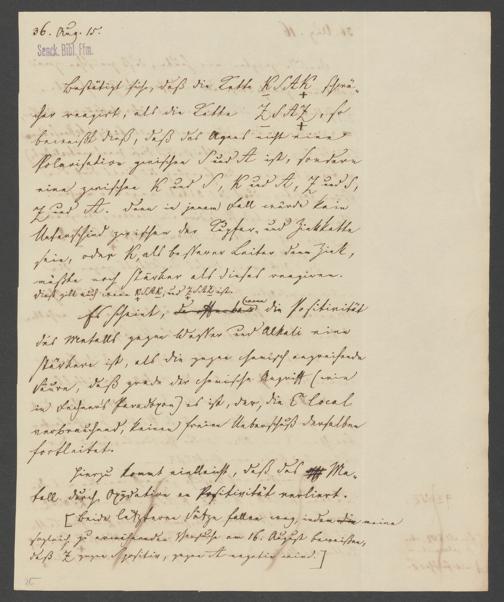 36. Aug. 15.
Senck. Bibl. Ffm.
Bestätigt sich, daß die Kette K S A K schwä-
cher reagirt, als die Kette Z S A Z, so
beweißt dieß, daß das Agens nicht eine
Polarisation zwischen S und A ist, sondern
eine zwischen K und S, K und A, Z und S,
Z und A. denn in jenem Fall würde kein
Unterschied zwischen der Kupfer- und Zinkkette
sein, oder K, als besserer Leiter denn Zink,
müßte noch stärker als dieses reagiren.
dieß gilt auch wenn K S A K, und Z S A Z ist.
Es scheint, wenn die Positivität
des Metalls gegen Wasser und Alkali eine
stärkere ist, als die gegen chemisch angreifende
Säure, daß grade der chemische Angriff (wie
in Fechners Paradoxon) es ist, der, die E local
verbrauchend, keinen freien Ueberschuß derselben
fortleitet.
Hierzu kommt vielleicht, daß das Me-
tall durch Oxydation an Positivität verliert.
[beide letztern Sätze fallen weg, indem meine
sogleich zu Versuche am 16. August beweisen,
daß Z gegen S positiv, gegen A negativ wird.]